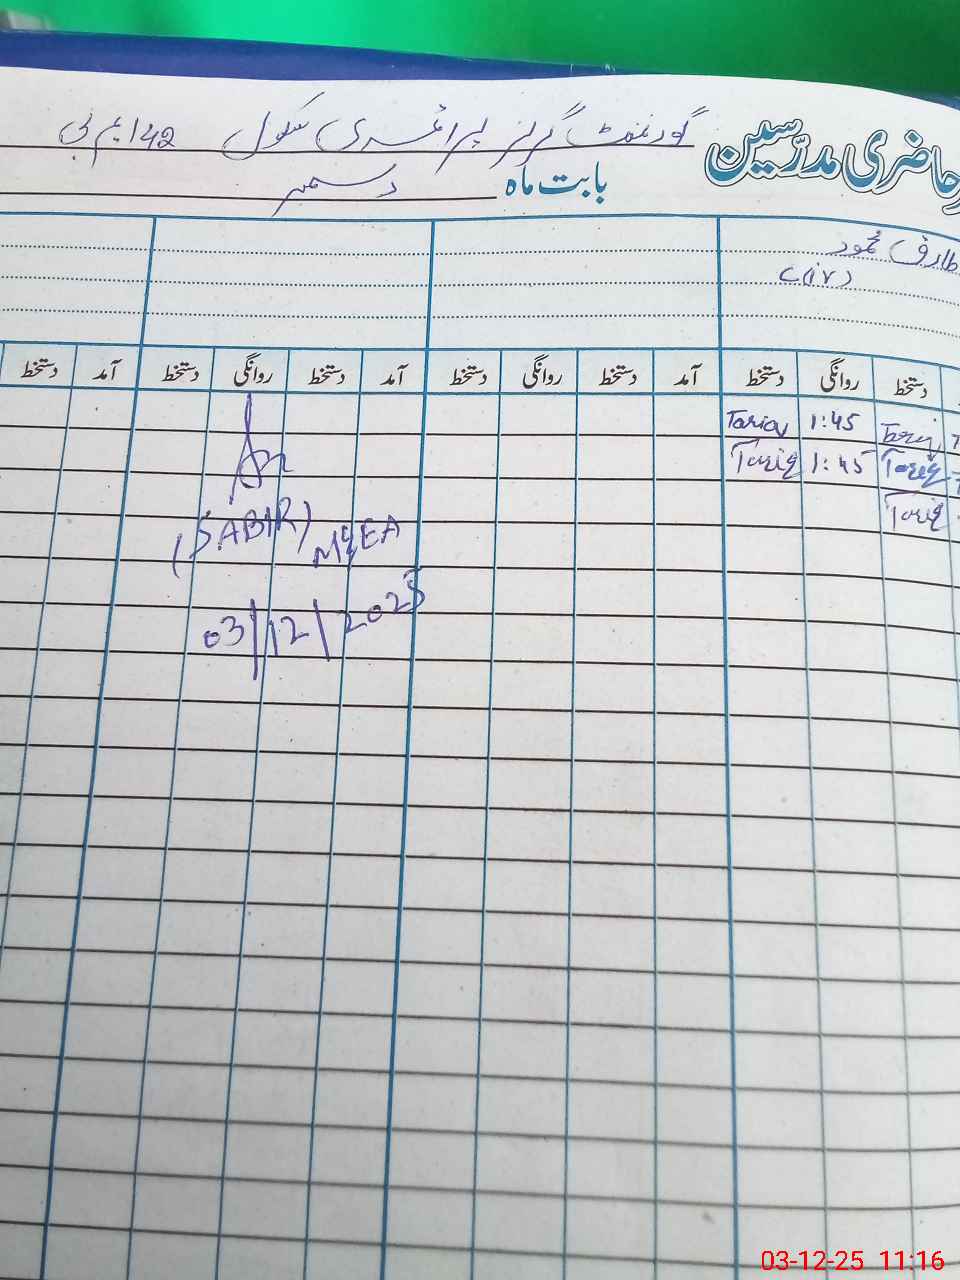 حاضری مدرسین گورنمنٹ گرلز پرائمری سکول 142 ایم بی
بابت ماہ دسمبر
طارق محمود
C(iv)
دستخط روانگی دستخط آمد دستخط روانگی دستخط آمد دستخط روانگی دستخط آمد
Tariq 1:45 Tariq
Tariq 1:45 Tariq
Tariq
(SABIR)
M&EA
03/12/2025
03-12-25 11:16